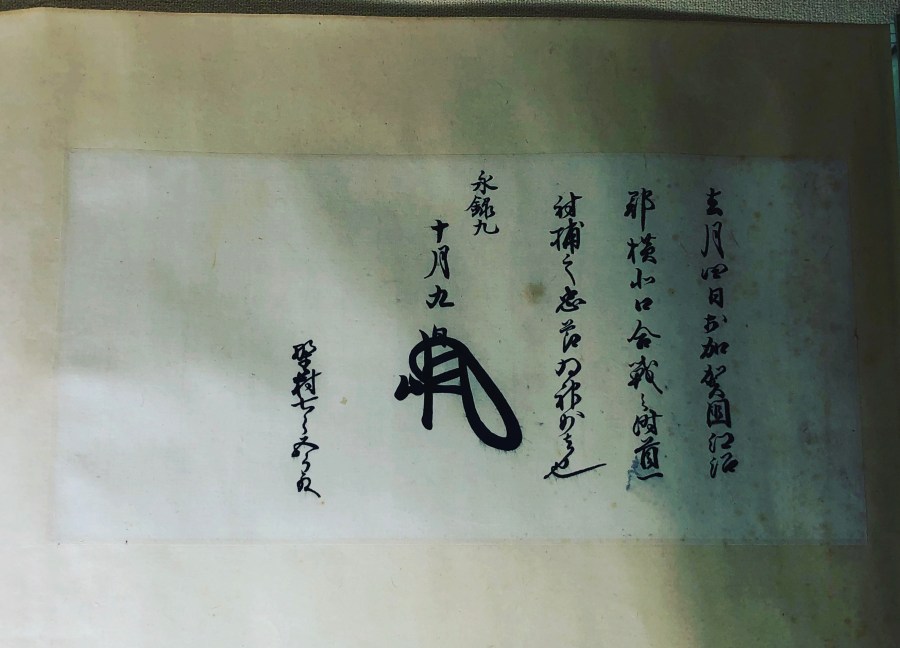 去月四日於加賀国江沼
郡横北口合戦之時首一
討捕之忠節神妙也
永録九
十月九日
村七五殿